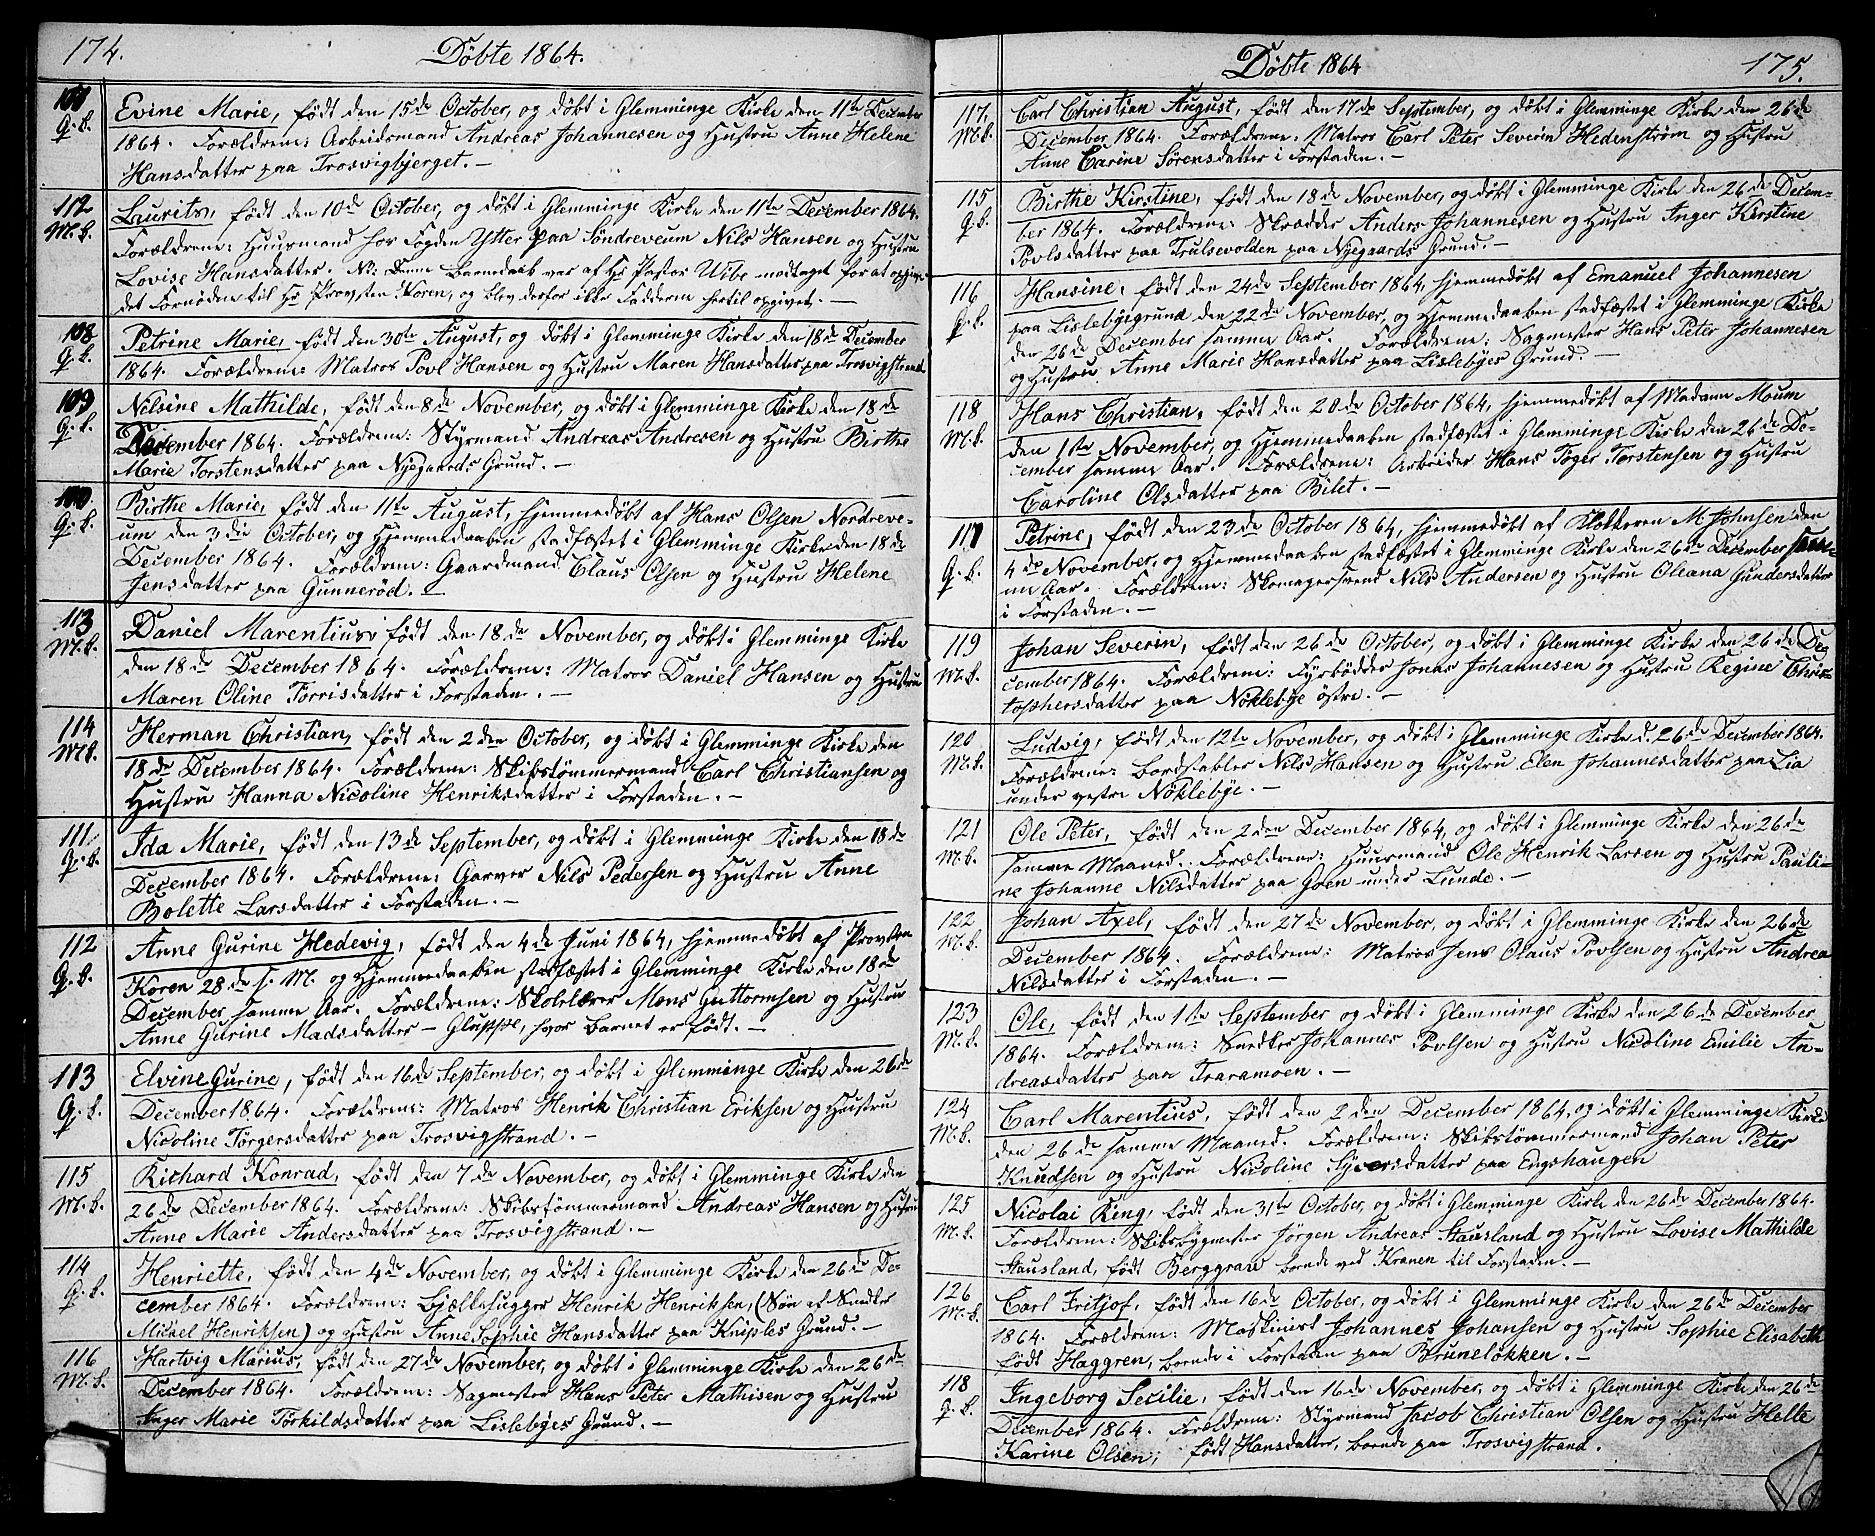 174.
Døbte 1864.
Q. k. Evine Marie, født den 15de October, og døbt i Glemminge Kirke den 11te December
1864. Forældrene: Arbeidsmand Andreas Johannesen og Hustru Anne Helene
Hansdatter paa Trosvigbjerget. —
112 M. k. Laurits, født den 10de October, og døbt i Glemminge Kirke den 11te December 1864.
Forældrene: Huusmand hos Fogden Ytter paa Søndreveum Nils Hansen og Hustru
Lovise Hansdatter. Denne Barnedaab var af Hr Pastor Wibe modtaget for at opgive
det Fornødne til Hr Provsten Koren, og blev derfor ikke Fadderne hertil opgivet. —
108 Q. k. Petrine Marie, født den 30te August, og døbt i Glemminge Kirke den 18de December
1864. Forældrene: Matros Povl Hansen og Hustru Maren Hansdatter paa Trosvigstrand
109 Q. k. Nilsine Mathilde, født den 8de November, og døbt i Glemminge Kirke den 18de
December 1864. Forældrene: Styrmand Andreas Andresen og Hustru Birthe
Marie Torstensdatter paa Nyegaards Grund. —
Q. k. Birthe Marie, født den 11te August, hjemmedøbt af Hans Olsen Nordreve-
um den 3die October, og Hjemmedaaben stadfæstet i Glemminge Kirke den 18de
December 1864. Forældrene: Gaardmand Claus Olsen og Hustru Helene
Jensdatter paa Gunnerød. —
113 M. k. Daniel Marentius, født den 18de November, og døbt i Glemminge Kirke
den 18de December 1864. Forældrene: Matros Daniel Hansen og Hustru
Maren Oline Torrisdatter i Forstaden. —
114 M. k. Herman Christian, født den 2den October, og døbt i Glemminge Kirke den
18de December 1864. Forældrene: Skibstømmermand Carl Christiansen og
Hustru Hanna Nicoline Henriksdatter i Forstaden. —
111. Q. k. Ida Marie, født den 13de September, og døbt i Glemminge Kirke den 18de
December 1864. Forældrene: Garver Nils Pedersen og Hustru Anne
Bolette Larsdatter i Forstaden. —
112 Q. k. Anne Gurine Hedevig, født den 4de Juni 1864, hjemmedøbt af Provsten
Koren 28de s. M. og Hjemmedaaben stadfæstet i Glemminge Kirke den 18de
December samme Aar. Forældrene: Skolelærer Mons Guttormsen og Hustru
Anne Gurine Madsdatter — Gluppe, hvor Barnet er født. —
113 Q. k. Elvine Gurine, født den 16de September, og døbt i Glemminge Kirke den 26de
December 1864. Forældrene: Matros Henrik Christian Eriksen og Hustru
Nicoline Törgersdatter paa Trosvigstrand. —
115 M. k. Richard Konrad, født den 7de November, og døbt i Glemminge Kirke den
26de December 1864. Forældrene: Skibstømmermand Andreas Hansen og Hustru
Anne Marie Andersdatter paa Trosvigstrand. —
114 Q. k. Henriette, født den 4de November, og døbt i Glemminge Kirke den 26de De-
cember 1864. Forældrene: Bjælkehugger Henrik Henriksen, (Søn af Snedker
Michael Henriksen) og Hustru Anne Sophie Hansdatter paa Kniples Grund. —
116 M. k. Hartvig Marius, født den 27de November, og døbt i Glemminge Kirke den 26de
December 1864. Forældrene: Sagmester Hans Peter Mathisen og Hustru
Inger Marie Törkildsdatter paa Lislebyes Grund. —
175.
Døbte 1864
117. M. k. Carl Christian August, født den 17de September, og døbt i Glemminge Kirke den 26de
December 1864. Forældrene: Matros Carl Peter Severin Hedenstrøm og Hustru
Anne Carine Sörensdatter i Forstaden. —
115 Q. k. Birthe Kirstine, født den 18de November, og døbt i Glemminge Kirke den 26de Decem-
ber 1864. Forældrene: Skrædder Anders Johannesen og Hustru Inger Kirstine
Povlsdatter paa Trulsevolden paa Nyegaards Grund. —
116 Q. k. Hansine, født den 24de September 1864, hjemmedøbt af Emanuel Johannesen
paa Lislebyegrund den 22de November, og Hjemmedaaben stadfæstet i Glemminge Kirke
den 26de December samme Aar. Forældrene: Sagmester Hans Peter Johannesen
og Hustru Anne Marie Hansdatter paa Lislebyes Grund. —
118 M. k. Hans Christian, født den 20de October 1864, hjemmedøbt af Madam Moum
den 1ste November, og Hjemmedaaben stadfæstet i Glemminge Kirke den 26de De-
cember samme Aar. Forældrene: Arbeider Hans Töger Torstensen og Hustru
Caroline Olsdatter paa Bilet. —
117 Q. k. Petrine, født den 23de October 1864, hjemmedøbt af Klokkeren M. Johnsen den
4de November, og Hjemmedaaben stadfæstet i Glemminge Kirke den 26de December sam-
me Aar. Forældrene: Skomagersvend Nils Andersen og Hustru Oleana Gundersdatter
i Forstaden. —
119 M. k. Johan Severin, født den 26de October, og døbt i Glemminge Kirke den 26de De-
cember 1864. Forældrene: Fyrbøder Jonas Johannesen og Hustru Regine Chris-
tophersdatter paa Nöklebye östre. —
120 M. k. Ludvig, født den 12te November, og døbt i Glemminge Kirke d. 26de December 1864.
Forældrene: Bordstabler Nils Hansen og Hustru Elen Johannesdatter paa Lia
under vestre Nöklebye. —
121 M. k. Ole Peter, født den 2den December 1864, og døbt i Glemminge Kirke den 26de
samme Maaned. Forældrene: Huusmand Ole Henrik Larsen og Hustru Pauli-
ne Johanne Nilsdatter paa Joen under Lunde. —
122 M. k. Johan Axel, født den 27de November, og døbt i Glemminge Kirke den 26de
December 1864. Forældrene: Matros Jens Claus Povlsen og Hustru Andrea
Nilsdatter i Forstaden. —
123 M. k. Ole, født den 1ste September og døbt i Glemminge Kirke den 26de December
1864. Forældrene: Snedker Johannes Povlsen og Hustru Nicoline Emilie An-
dreasdatter paa Traramoen. —
124 M. k. Carl Marentius, født den 2den December 1864, og døbt i Glemminge Kirke
den 26de samme Maaned. Forældrene: Skibstømmermand Johan Peter
Knudsen og Hustru Nicoline Syversdatter paa Engshaugen
125 M. k. Nicolai Ring, født den 31te October, og døbt i Glemminge Kirke den 26de December 1864.
Forældrene: Skibsbygmester Jörgen Andreas Stausland og Hustru Lovise Mathilde
Stausland, født Berggraw boende ved Kranen til Forstaden. —
126 M. k. Carl Fritjof, født den 16de October, og døbt i Glemminge Kirke den 26de December
1864. Forældrene: Maskinist Johannes Johansen og Hustru Sophie Elisabeth
født Haggren, boende i Forstaden paa Bruneløkken. —
118 Q. k. Ingeborg Secilie, født den 16de November, og døbt i Glemminge Kirke den 26de
December 1864. Forældrene: Styrmand Jacob Christian Olsen og Hustru Helle
Karine Olsen, født Hansdatter, boende paa Trosvigstrand.